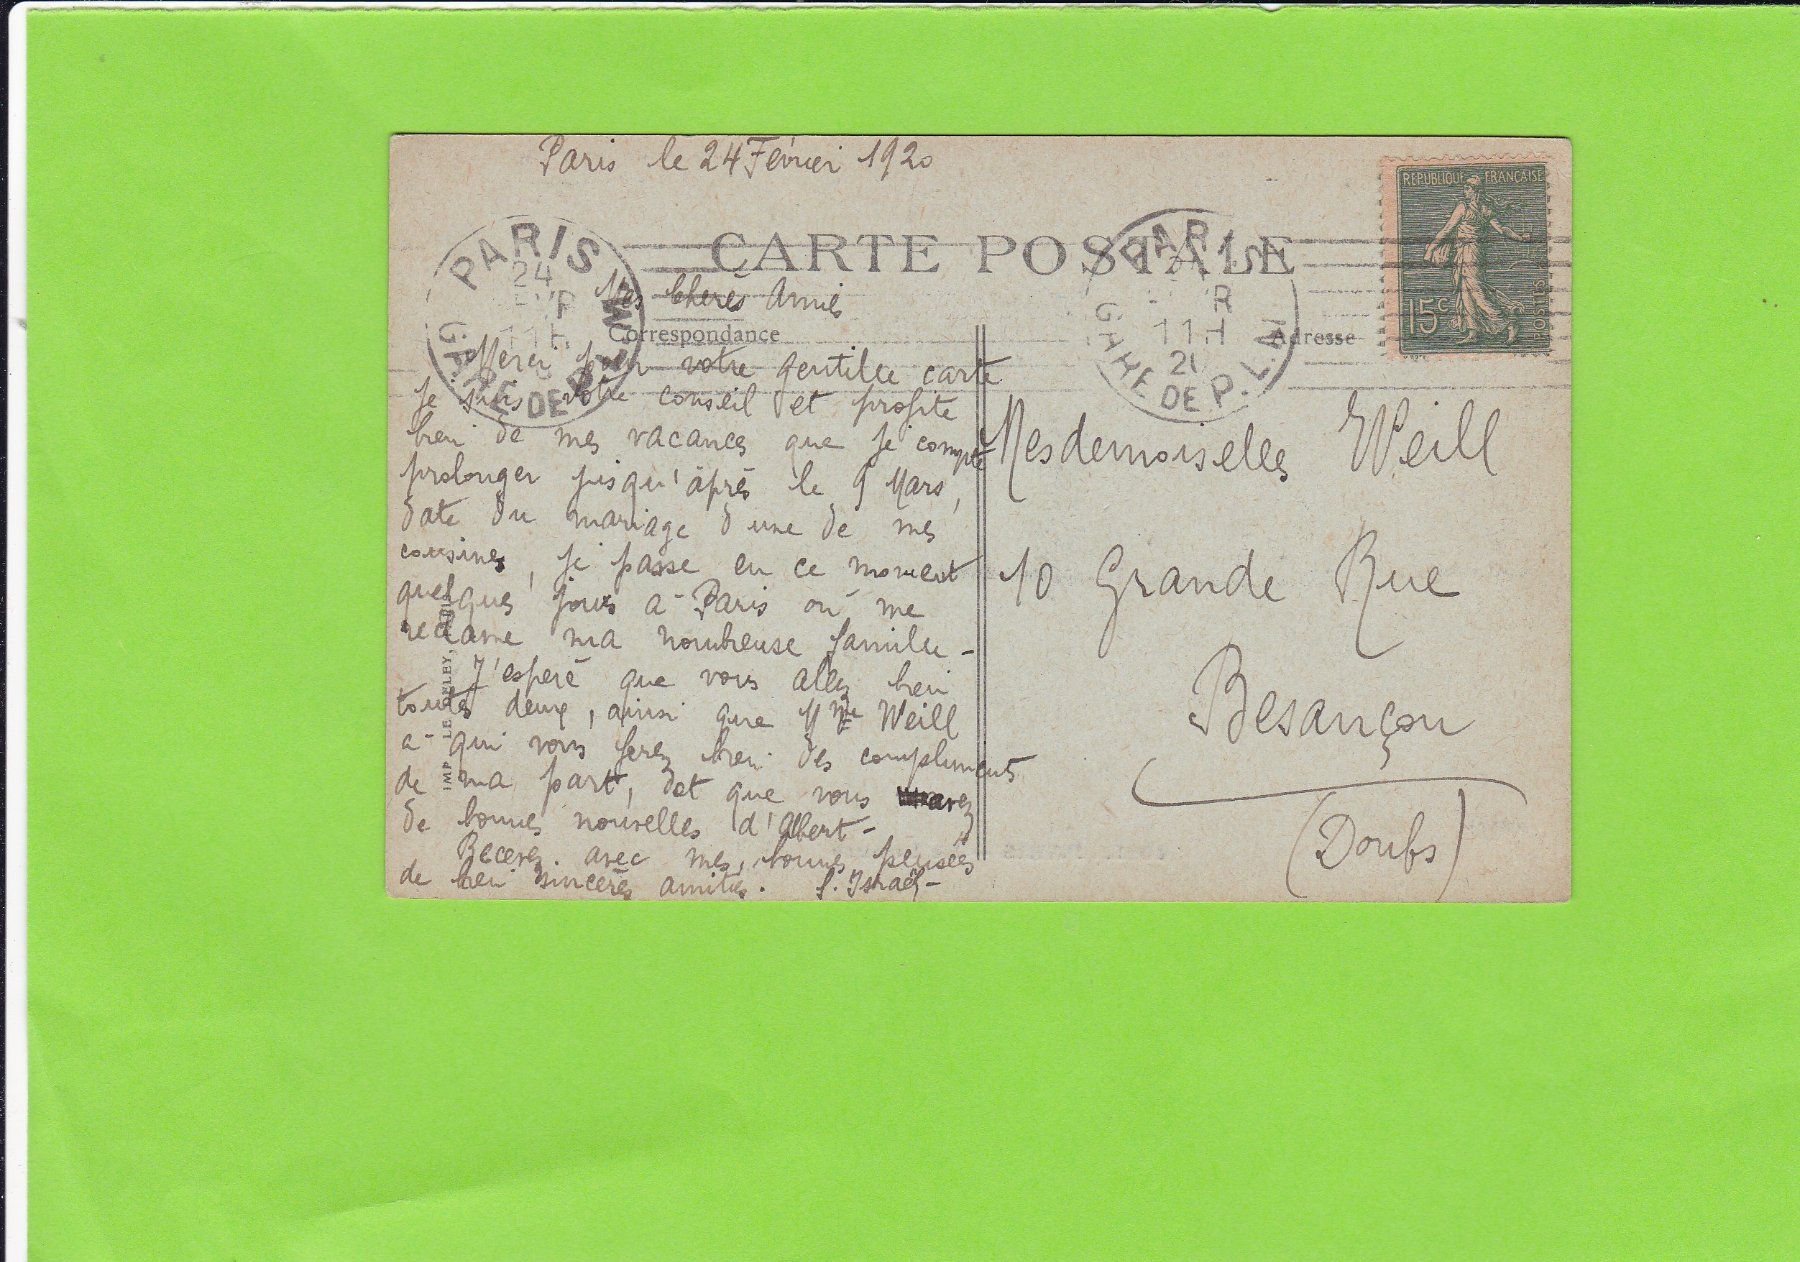 Paris le 24 Février 1920
CARTE POSTALE
REPUBLIQUE FRANÇAISE
15c
POSTES
PARIS
24
11H
GARE DE P.L.M
PARIS
11H
GARE DE P.L.M
Mes chères Amies
Correspondance
Adresse
Merci pour votre gentille carte
Je suis votre conseil et profite
bien de mes vacances que je compte
prolonger jusqu'après le 9 Mars,
date du mariage d'une de mes
cousines, je passe en ce moment
quelques jours à Paris où me
réclame ma nombreuse famille -
J'espère que vous allez bien
toutes deux, ainsi que Mme Weill
à qui vous ferez bien des compliments
de ma part, et que vous avez
de bonnes nouvelles d'Albert -
Recevez avec mes bonnes pensées
de bien sincères amitiés. Israël -
IMP. LE DELEY,
Mesdemoiselles Weill
10 Grande Rue
Besançon
(Doubs)